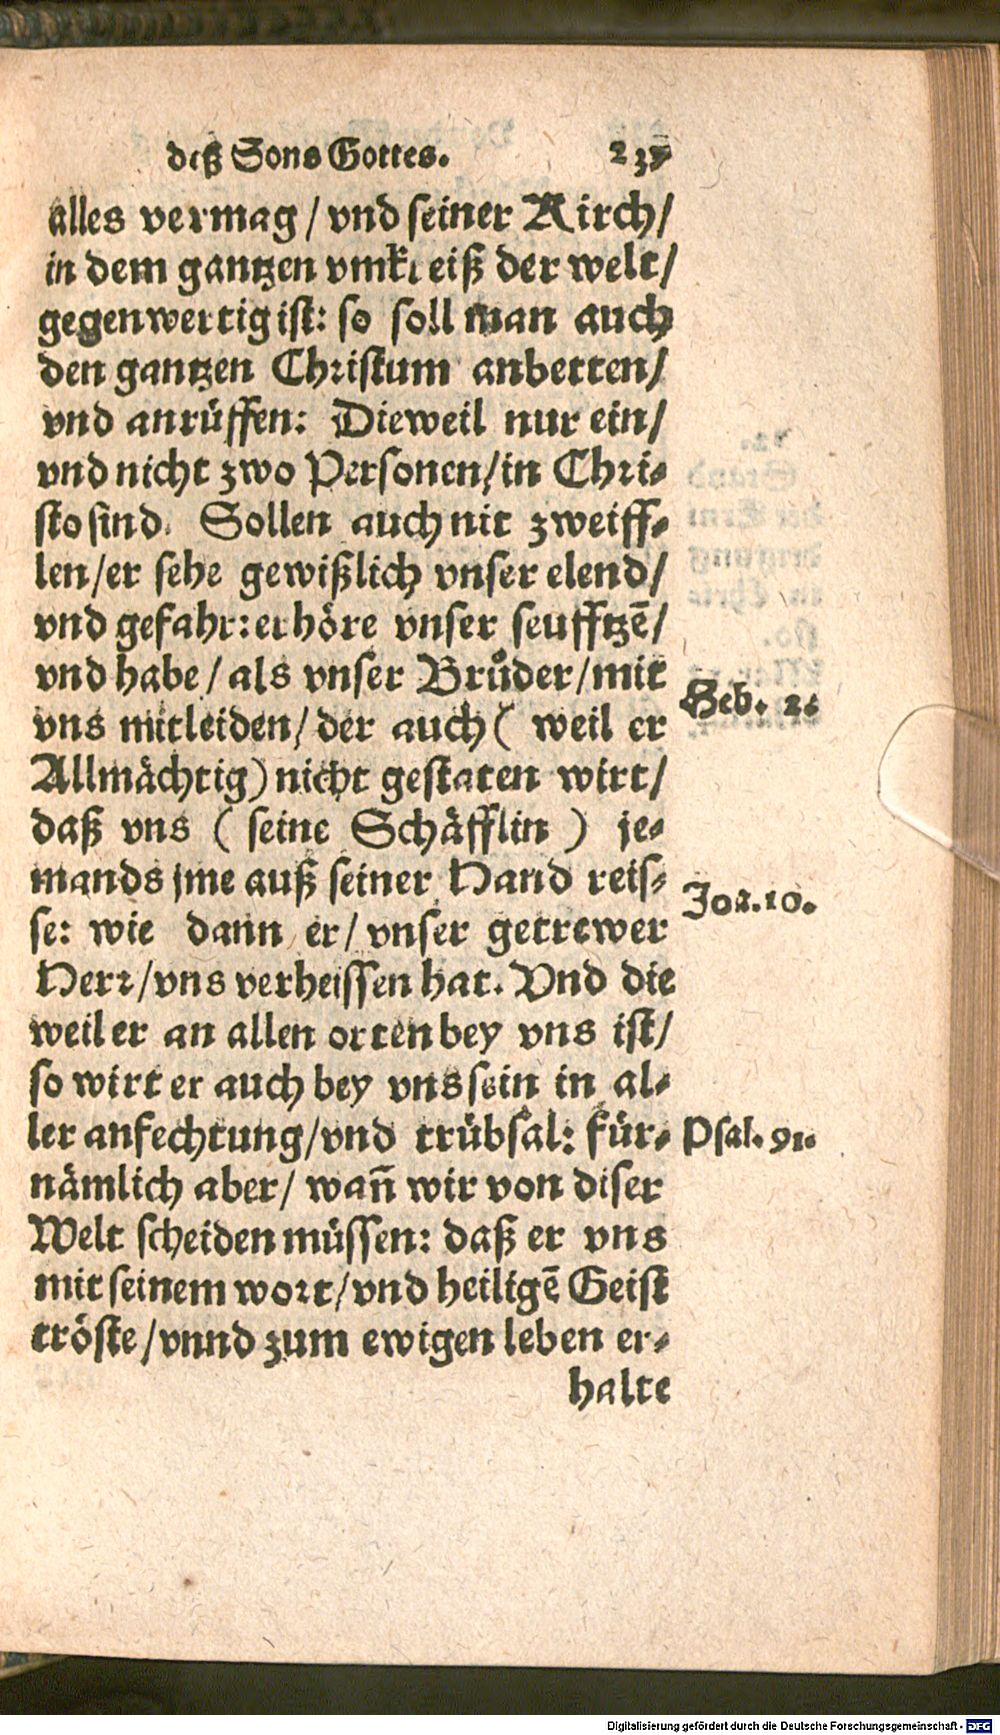 deß Sons Gottes.
alles vermag / vnd seiner Kirch /
in dem gantzen vmkreiß der welt /
gegenwertig ist: so soll man auch
den gantzen Christum anbetten /
vnd anrüffen: Dieweil nur ein /
vnd nicht zwo Personen / in Chri-
sto sind. Sollen auch nit zweiff-
len / er sehe gewißlich vnser elend /
vnd gefahr: erhöre vnser seufftzē /
vnd habe / als vnser Bruͦder / mit
vns mitleiden / der auch ( weil er
Heb. 2.
Allmächtig ) nicht gestaten wirt /
daß vns ( seine Schäfflin ) je-
mands jme auß seiner Hand reis-
Joa. 10.
se: wie dann er / vnser getrewer
Herr / vns verheissen hat. Vnd die
weil er an allen orten bey vns ist /
so wirt er auch bey vns sein in al-
ler anfechtung / vnd trübsal: für-
Psal. 91.
nämlich aber / wañ wir von diser
Welt scheiden müssen: daß er vns
mit seinem wort / vnd heiligē Geist
tröste / vnnd zum ewigen leben er-
halte
Digitalisierung gefördert durch die Deutsche Forschungsgemeinschaft - DFG